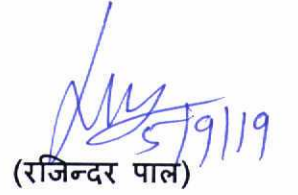 5/9/19
(रजिन्दर पाल)